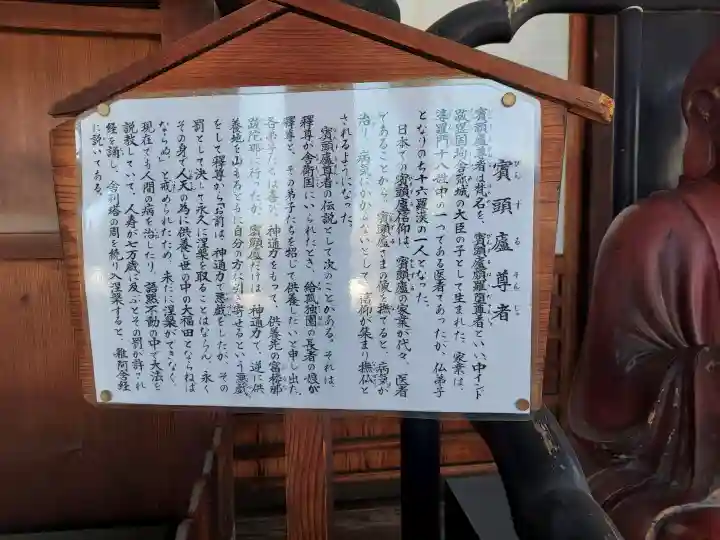 賓頭盧尊者
びんずるそんじゃ
賓頭盧尊者は梵名を、賓頭盧頗羅堕尊者といい、中インド
国 城の大臣の子として生まれた。家業は
婆羅門十八姓中の一つである医者であったが、仏弟子
となりのち十六羅漢の一人となった。
日本での賓頭盧信仰は、賓頭盧の家業が代々、医者
であることから、賓頭盧さまの像を撫でると、病気が
治り、病気にかからないとして、信仰が集まり撫仏と
されるようになった。
賓頭盧尊者の伝説として次のことがある。それは、
釋尊が舎衛国にいられたとき、給孤独園の長者の娘が
釋尊と、その弟子たちを招じて供養したいと申し出た。
各弟子たちは善な神通力をもって、供養先の富
に行ったが、賓頭盧だけは、神通力で、逆に供
養地を山もろともに自分の方に引き寄せるという悪戯
をして釋尊から「お前は、神通力で悪戯をしたが、その
罰として決して永久に涅槃を取ることはならん。永く
その身で人天の為に供養し世の中の大福田とならねば
ならぬ」と戒められたため、未だに涅槃ができなく、
現在でも人間の病を治したり、語黙不動の中で大法を
説教していて、人寿が七万歳に及ぶとその罰が許され
経を誦し、舎利塔の周を繞り入涅槃すると、雜阿含経
に説いてある。